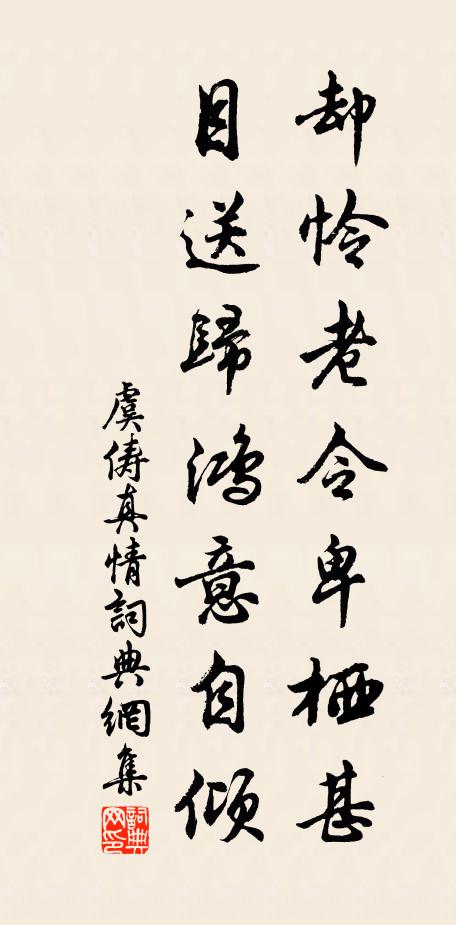 却怜老令卑栖甚
目送歸鴻意自傾
虞儔真情詞典網集
詞典網印